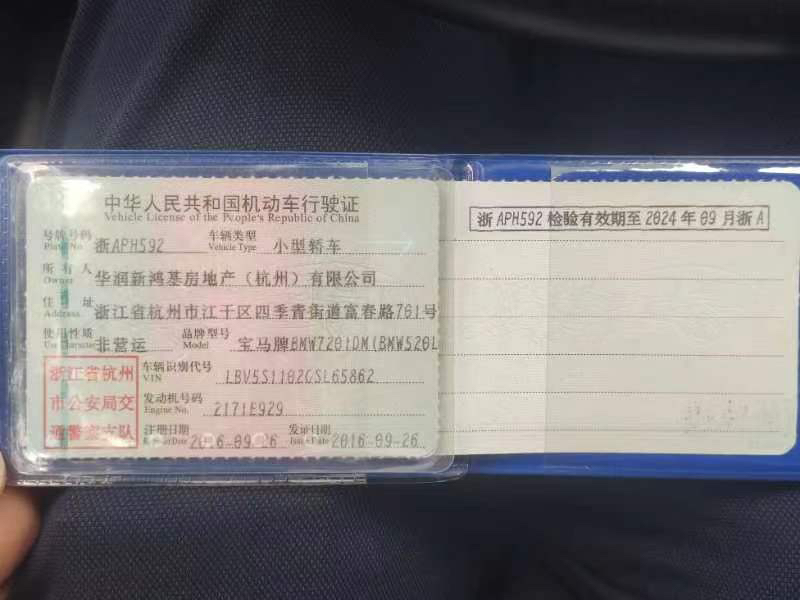 中华人民共和国机动车行驶证
Vehicle License of the People's Republic of China
号牌号码 浙APH592 车辆类型 小型轿车
Plate No. Vehicle Type
所有人 华润新鸿基房地产（杭州）有限公司
Owner
住址 浙江省杭州市江干区四季青街道富春路701号
Address
使用性质 非营运 品牌型号 宝马牌BMW7201DM(BMW520L
Use Character Model
车辆识别代号 LBV5S1102GSL65862
VIN
发动机号码 2171E929
Engine No.
注册日期 2016-09-26 发证日期 2016-09-26
Register Date Issue Date
浙江省杭州
市公安局交
通警察支队
浙APH592检验有效期至2024年09月浙A